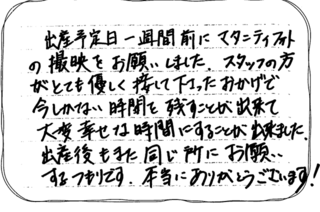 出産予定日一週間前にマタニティフォト
の撮映をお願いしました。スタッフの方
がとても優しく接して下さったおかげで
今しかない時間を残すことが出来て
大変幸せな時間にすることが出来ました。
出産後もまた同じ所にお願い
するつもりです。本当にありがとうございます！